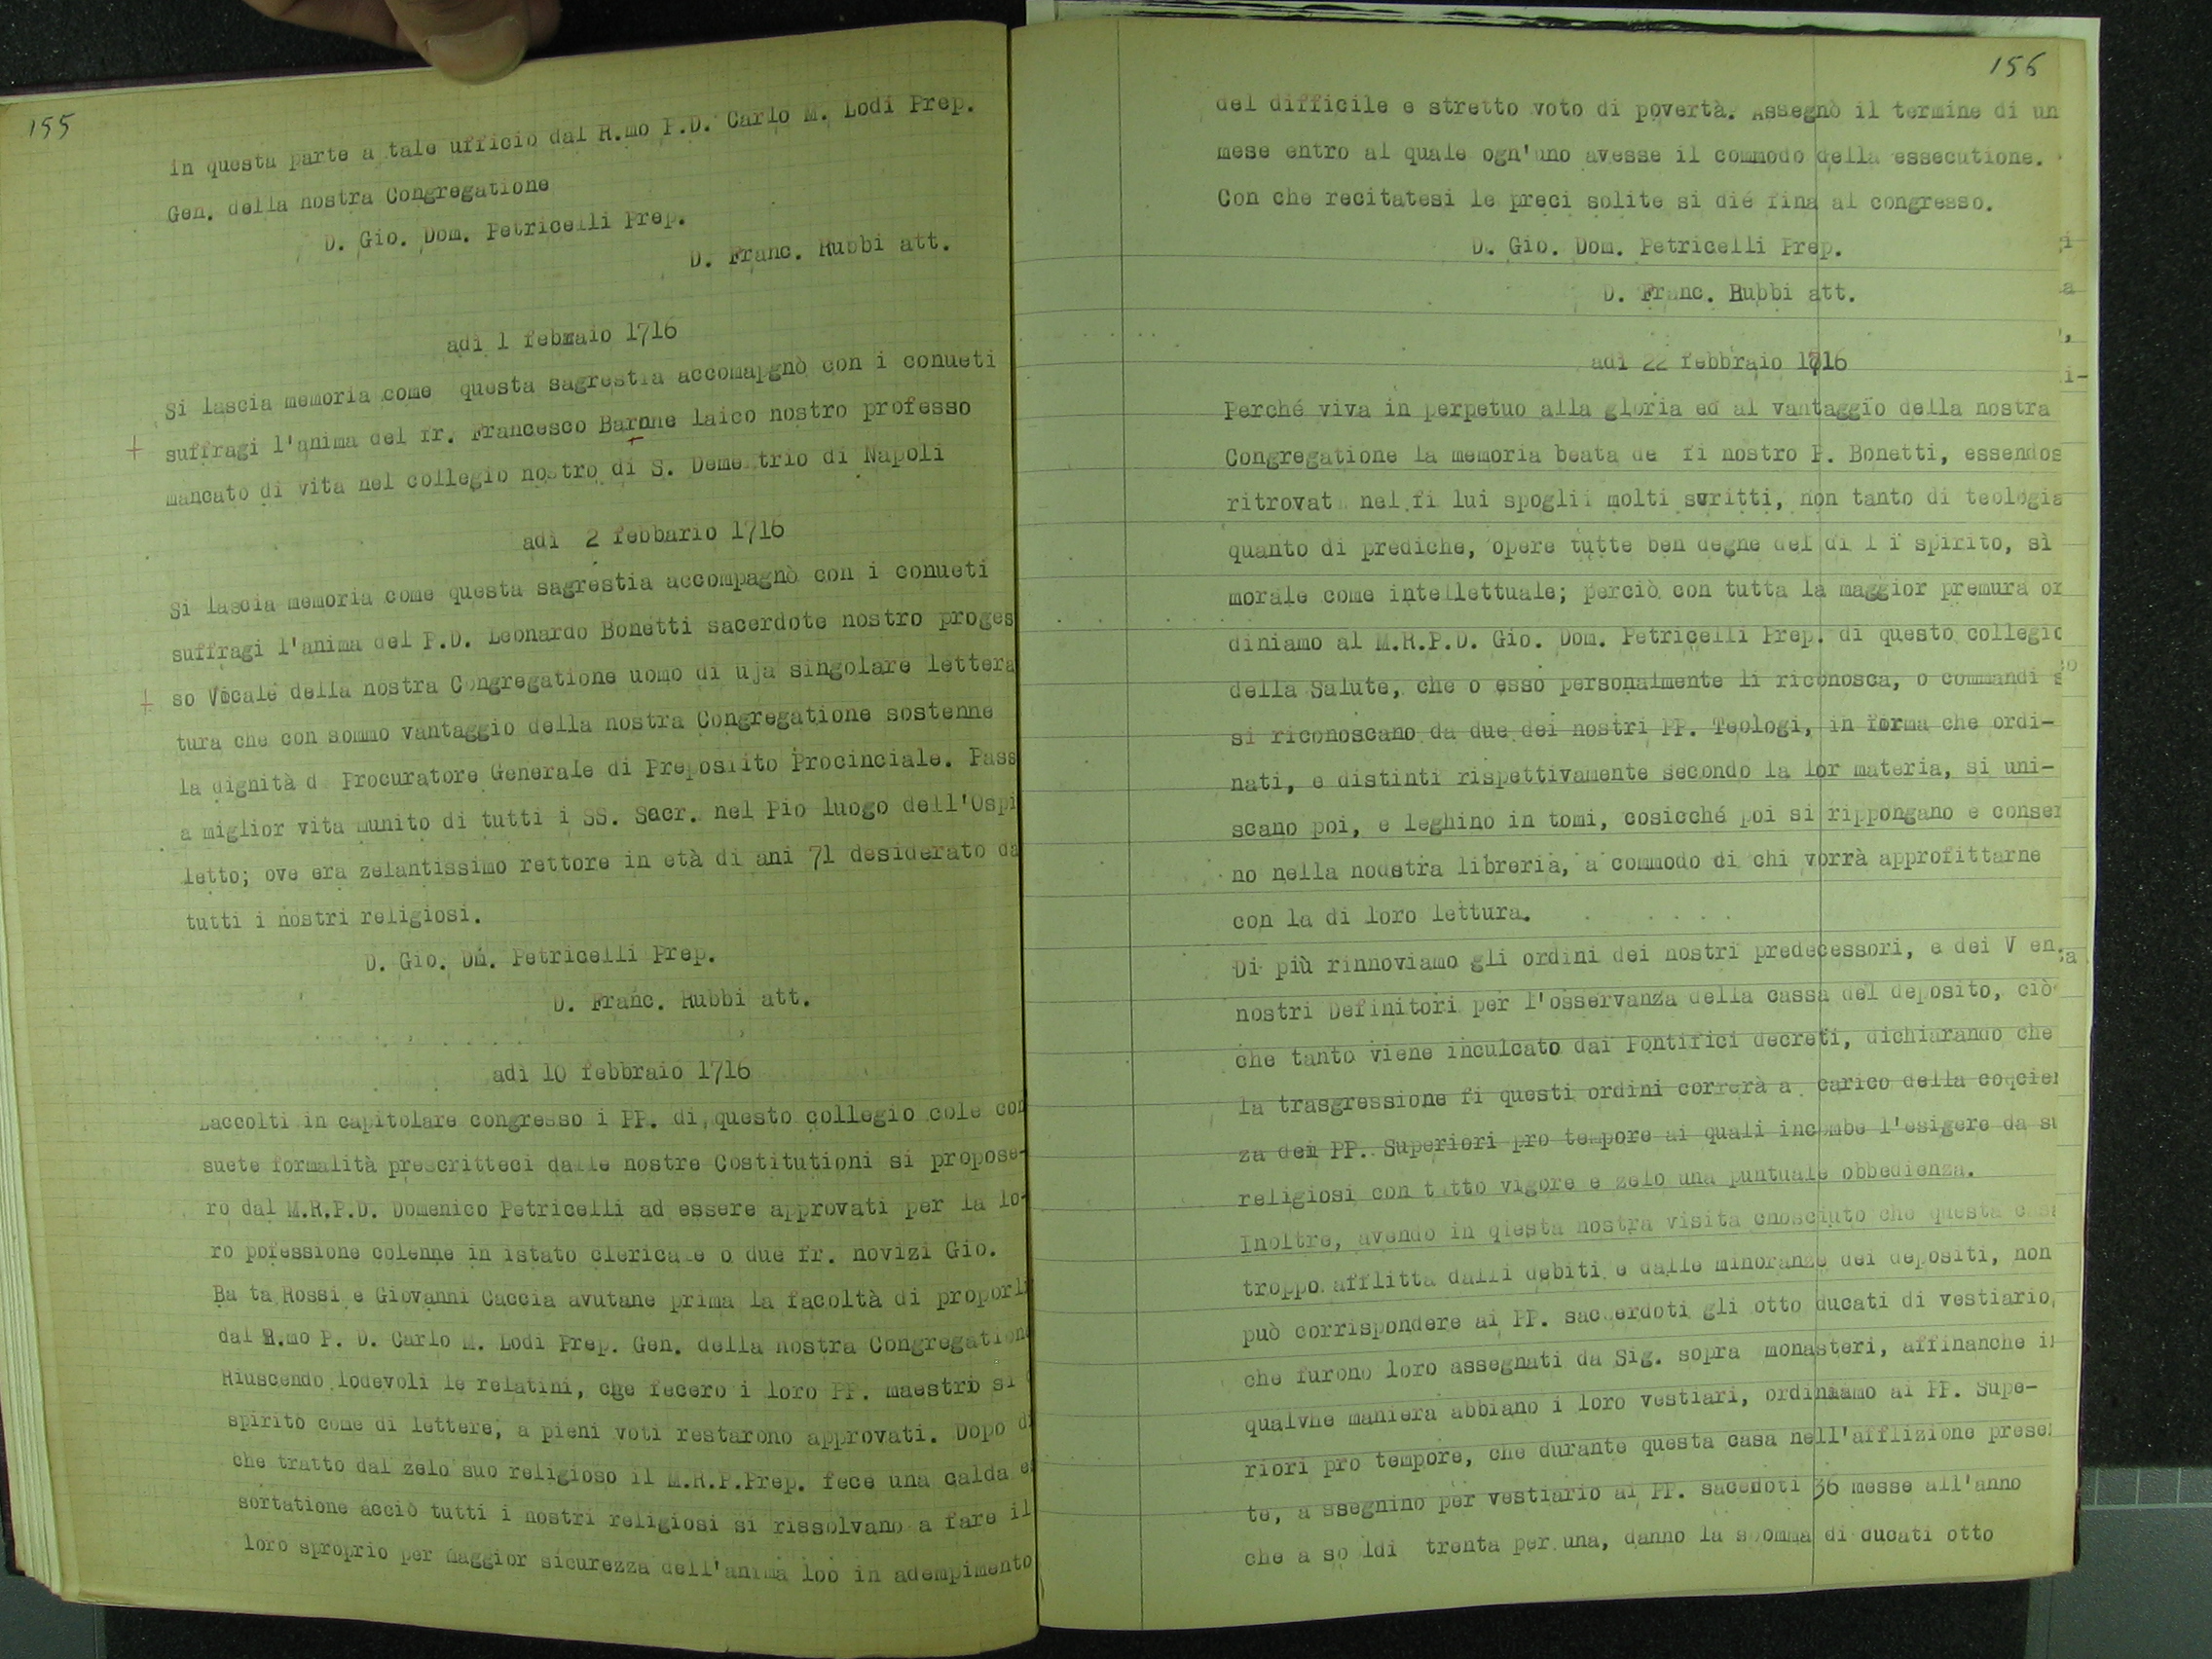 155
in questa parte a tale ufficio dal R.mo P.D. Carlo M. Lodi Prep.
Gen. della nostra Congregatione
D. Gio. Dom. Petricelli Prep.
D. Franc. Rubbi att.
adì 1 febraio 1716
Si lascia memoria come questa sagrestia accomapgnò con i conueti
suffragi l'anima del fr. Francesco Barone laico nostro professo
mancato di vita nel collegio nostro di S. Demetrio di Napoli
adì 2 febbario 1716
Si lascia memoria come questa sagrestia accompagnò con i conueti
suffragi l'anima del P.D. Leonardo Bonetti sacerdote nostro proges
so Vocale della nostra Congregatione uomo di uja singolare lettera
tura che con sommo vantaggio della nostra Congregatione sostenne
la dignità d Procuratore Generale di Preposiito Procinciale. Pass
a miglior vita munito di tutti i SS. Sacr. nel Pio luogo dell'Ospi
letto; ove era zelantissimo rettore in età di ani 71 desiderato da
tutti i nostri religiosi.
D. Gio. Dm. Petricelli Prep.
D. Franc. Rubbi att.
adì 10 febbraio 1716
Laccolti in capitolare congresso i PP. di questo collegio cole con
suete formalità prescritteci dalle nostre Costitutioni si propose-
ro dal M.R.P.D. Domenico Petricelli ad essere approvati per la lo-
ro pofessione colenne in istato clericale o due fr. novizi Gio.
Ba ta Rossi e Giovanni Caccia avutane prima la facoltà di proporli
dal R.mo P. D. Carlo M. Lodi Prep. Gen. della nostra Congregatione
Riuscendo lodevoli le relatini, cge fecero i loro PP. maestri sì
spirito come di lettere, a pieni voti restarono approvati. Dopo di
che tratto dal zelo suo religioso il M.R.P.Prep. fece una calda e
sortatione acciò tutti i nostri religiosi si rissolvano a fare il
loro sproprio per maggior sicurezza dell'anima loo in adempimento
156
del difficile e stretto voto di povertà. Assegnò il termine di un
mese entro al quale ogn'uno avesse il commodo della essecutione.
Con che recitatesi le preci solite si dié fina al congresso.
D. Gio. Dom. Petricelli Prep.
D. Franc. Rubbi att.
adì 22 febbraio 1716
Perché viva in perpetuo alla gloria ed al vantaggio della nostra
Congregatione la memoria beata de fi nostro P. Bonetti, essendos
ritrovat nel fi lui spoglii molti scritti, non tanto di teologia
quanto di prediche, opere tutte ben degne del di l i spirito, sì
morale come intellettuale; perciò con tutta la maggior premura or
diniamo al M.R.P.D. Gio. Dom. Petricelli Prep. di questo collegio
della Salute, che o esso personalmente li riconosca, o commandi
si riconoscano da due dei nostri PP. Teologi, in forma che ordi-
nati, e distinti rispettivamente secondo la lor materia, si uni-
scano poi, e leghino in tomi, cosicché poi si rippongano e conser
no nella noustra libreria, a commodo di chi vorrà approfittarne
con la di loro lettura.
Di più rinnoviamo gli ordini dei nostri predecessori, e dei V en.
nostri Definitori per l'osservanza della cassa del deposito, ciò
che tanto viene inculcato dai Pontifici decreti, dichiarando che
la trasgressione fi questi ordini correrà a carico della coqcien
za dei PP. Superiori pro tempore ai quali incombe l'esigere da su
religiosi con tutto vigore e zelo una puntuale obbedienza.
Inoltre, avendo in qiesta nostra visita cnosciuto che questa casa
troppo afflitta dalli debiti e dalle minoranze dei depositi, non
può corrispondere ai PP. sacerdoti gli otto ducati di vestiario,
che furono loro assegnati da Sig. sopra monasteri, affinanche in
qualvhe maniera abbiano i loro vestiari, ordiniamo ai PP. Supe-
riori pro tempore, che durante questa casa nell'afflizione presen
te, a ssegnino per vestiario ai PP. sacedoti 36 messe all'anno
che a so ldi trenta per una, danno la somma di ducati otto